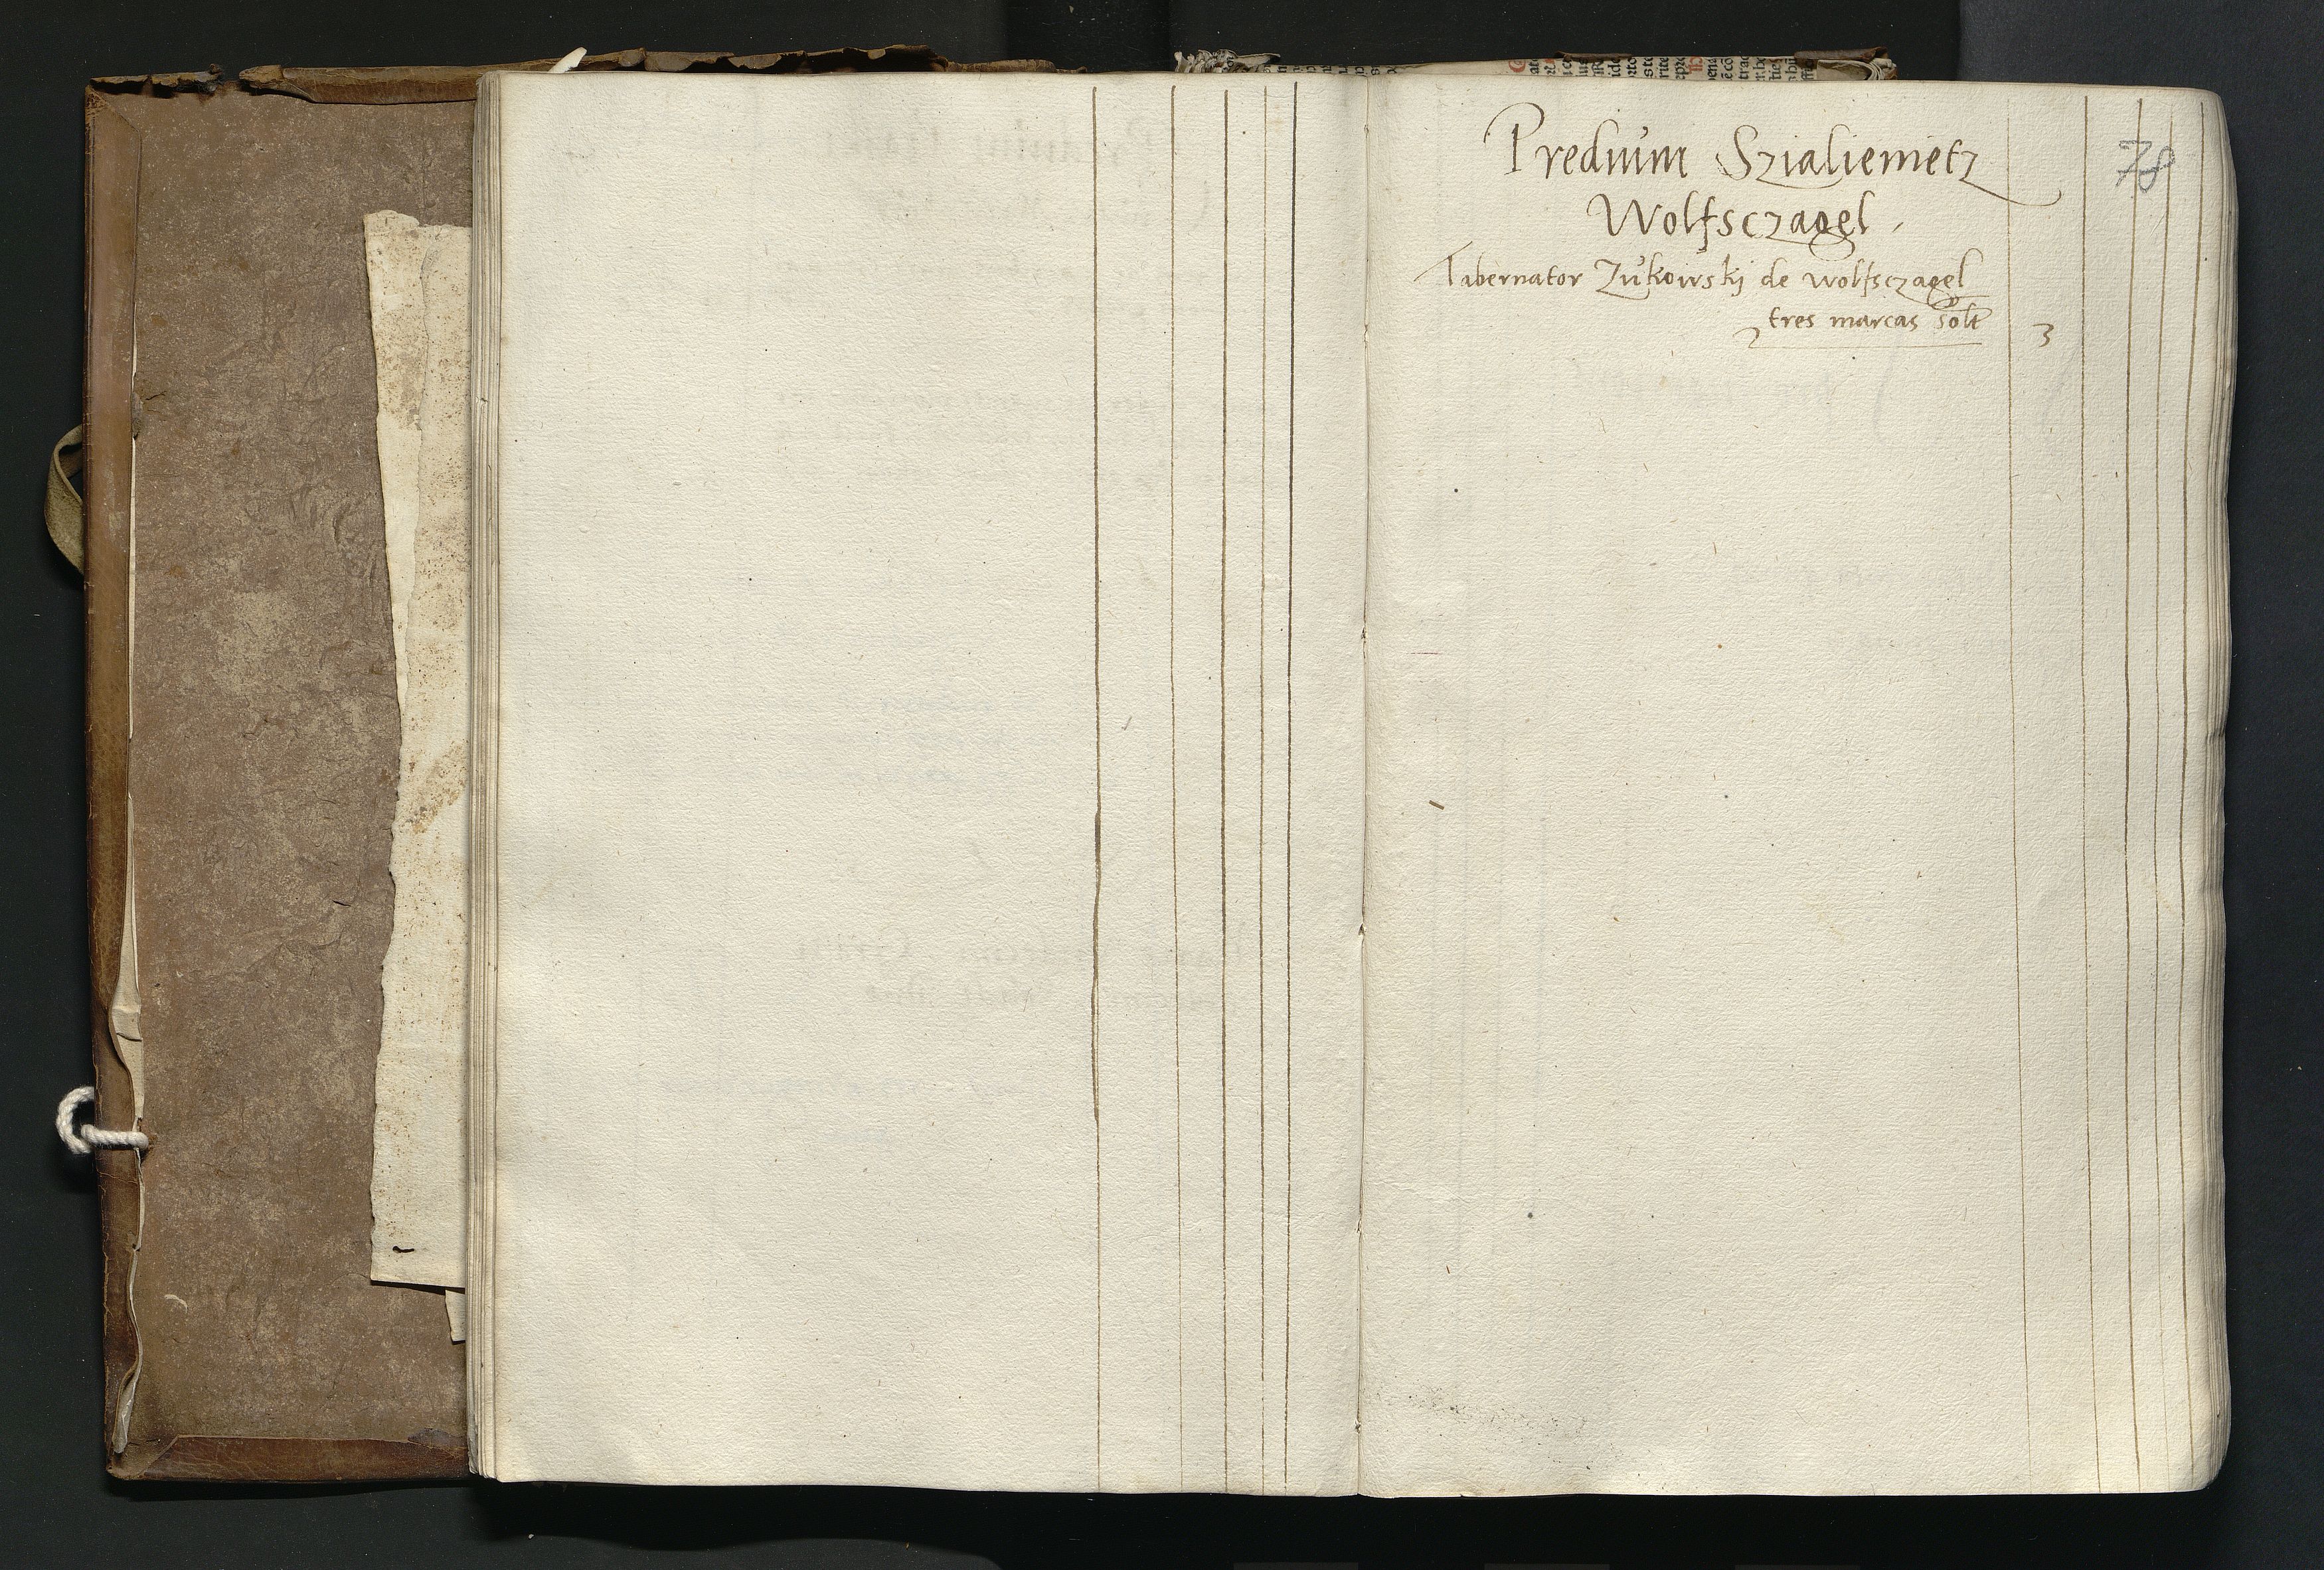 78
Predium Szialiemetz
Wolfsczagel.
Tabernator Zukowskj de wolfsczagel
tres marcas solt 3